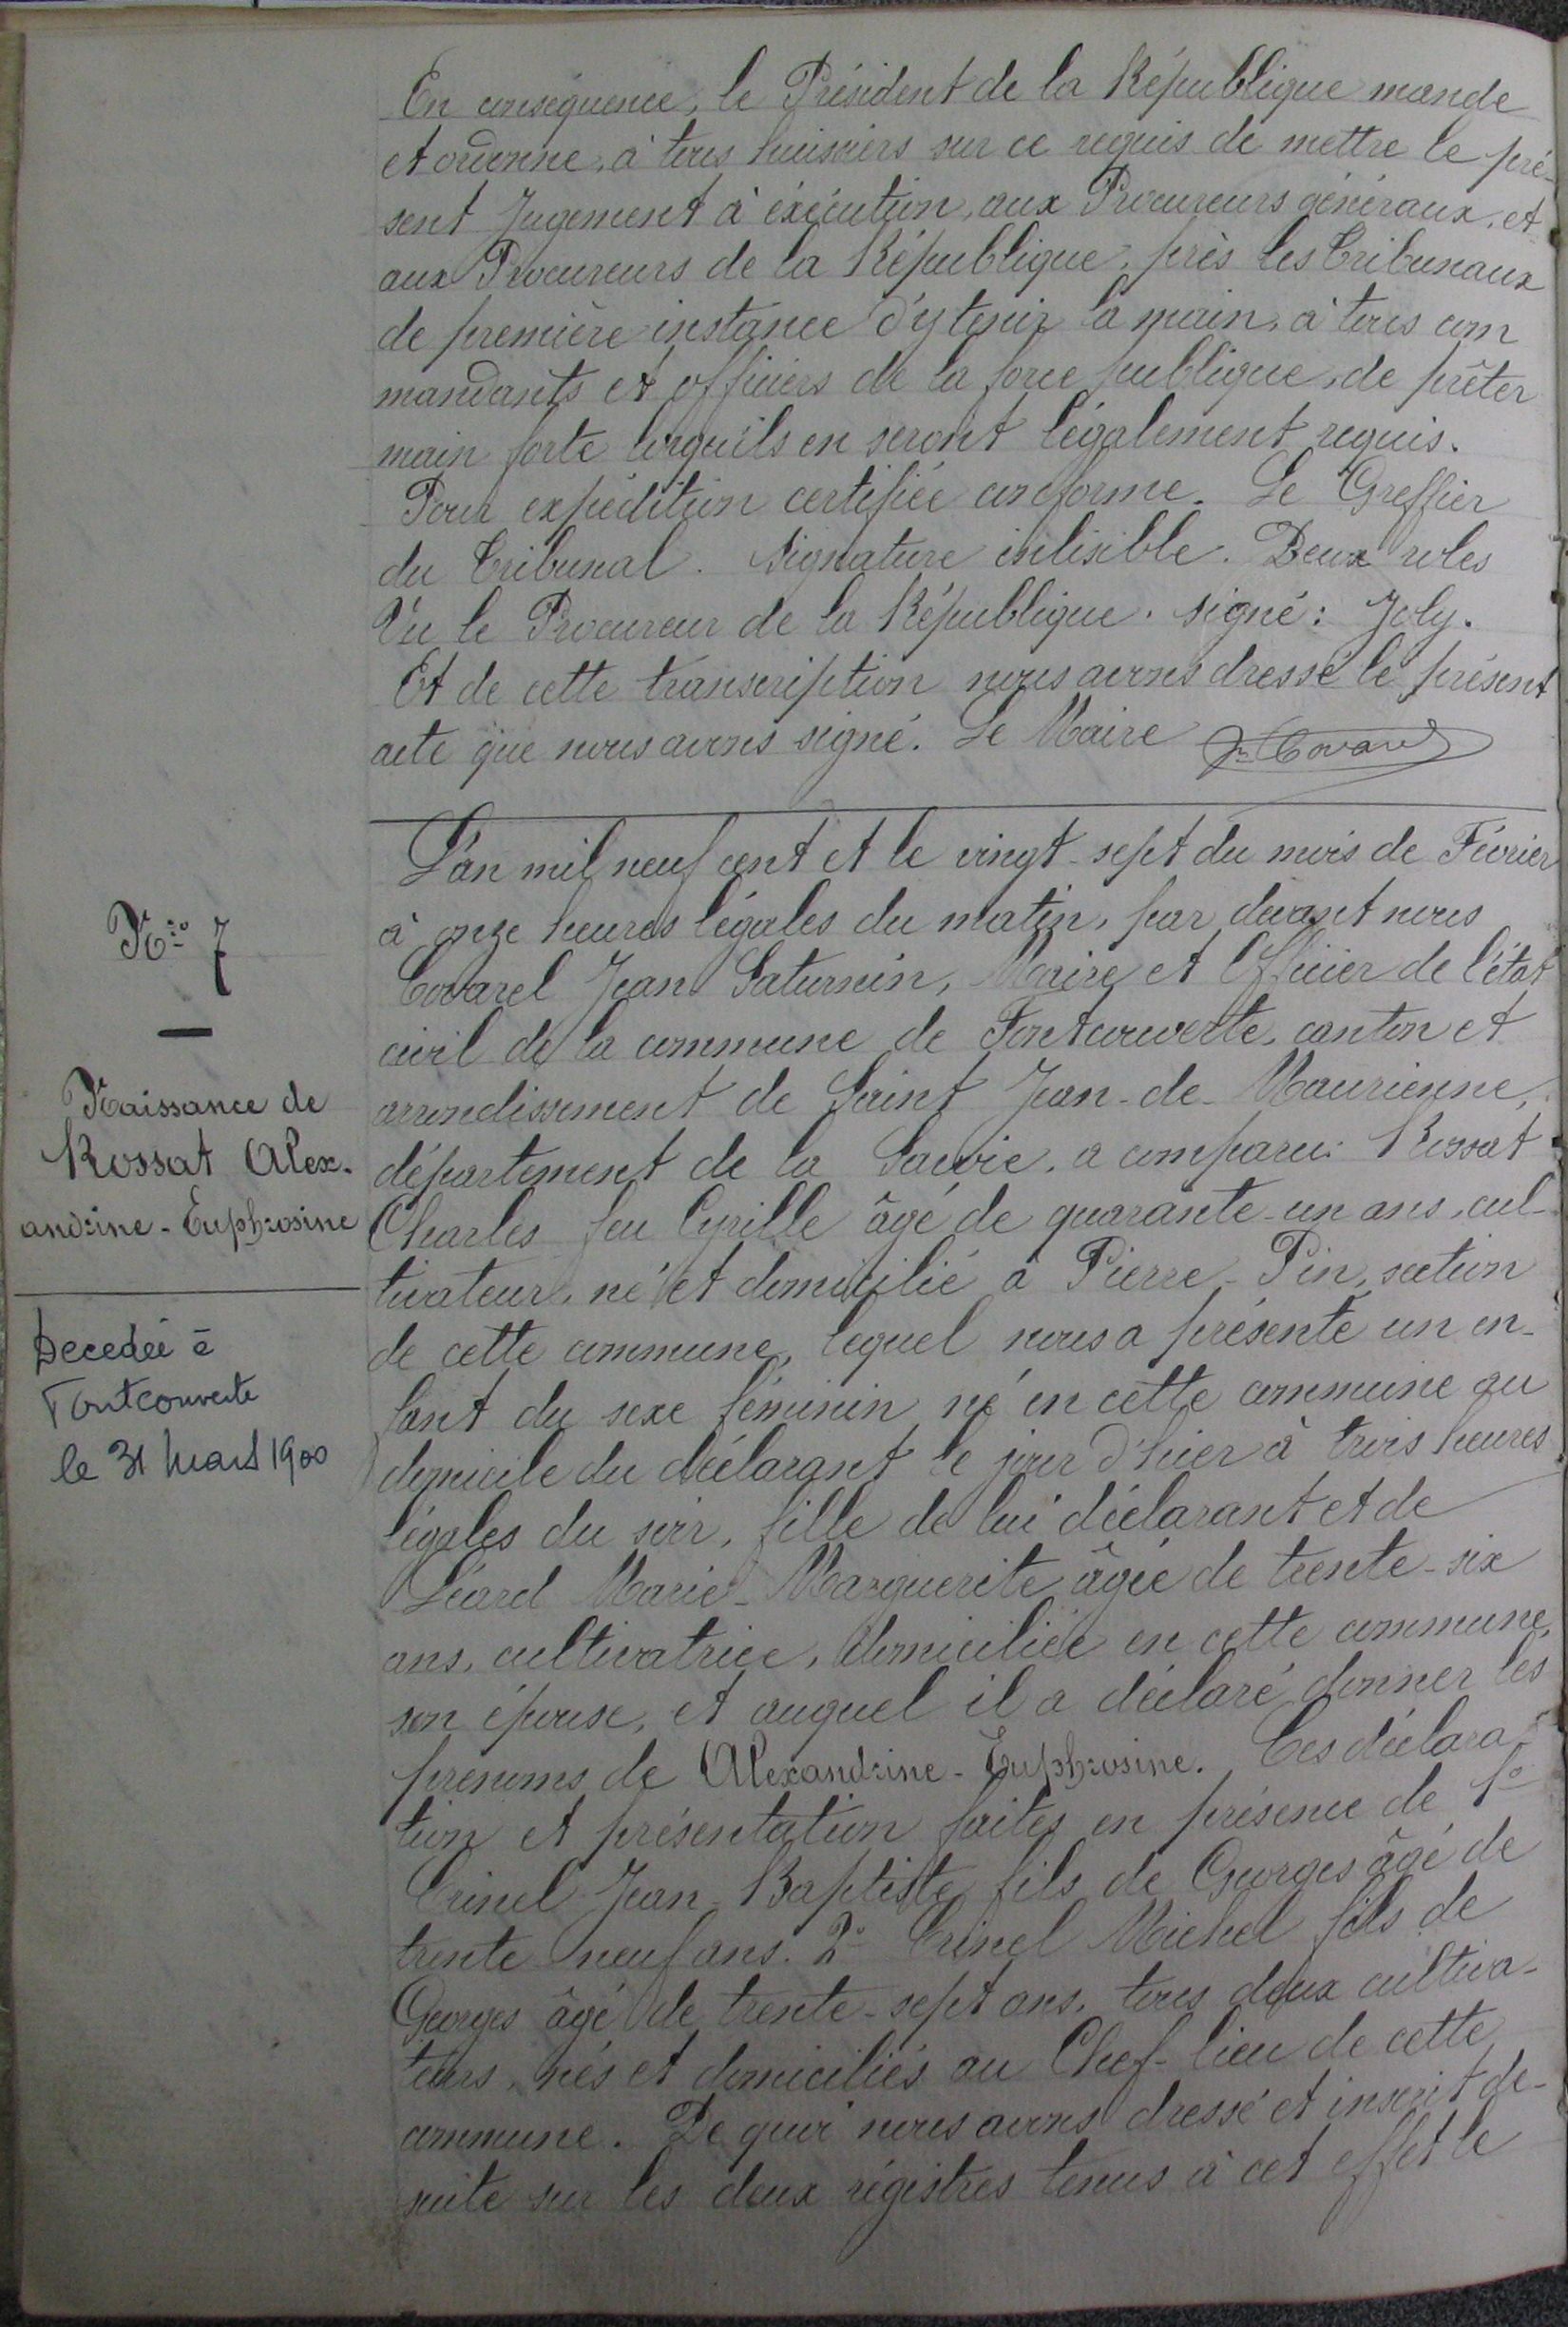 En conséquence, le Président de la République mande
et ordonne, à tous huissiers sur ce requis de mettre le pré-
sent Jugement à éxécution, aux Procureurs généraux, et
aux Procureurs de la République, près les Tribunaux
de première instance d'y tenir la main, à tous com
mandants et officiers de la force publique, de prêter
main forte lorsqu'ils en seront légalement requis.
Pour expédition certifiée conforme. Le Greffier
du Tribunal. Signature inlisible. Deux roles
Vu le Procureur de la République. signé: Joly.
Et de cette transcription nous avons dressé le présent
acte que nous avons signé. Le Maire Jn Covarel
N:ro 7
Naissance de
Rossat Alex-
andrine-Euphrosine
Decedée à
Fontcouverte
le 31 mars 1900
L'an mil neuf cent et le vingt-sept du mois de Février
à onze heures légales du matin, par devant nous
Covarel Jean Saturnin, Maire et Officier de l'état
civil de la commune de Fontcouverte, canton et
arrondissement de Saint Jean-de-Maurienne,
département de la Savoie, a comparu: Rossat
Charles feu Cyrille âgé de quarante-un ans, cul-
tivateur, né et domicilié à Pierre-Pin, section
de cette commune, lequel nous a présenté un en-
fant du sexe féminin né en cette commune au
domicile du déclarant le jour d'hier à trois heures
légales du soir, fille de lui déclarant et de
Léard Marie-Marguerite âgée de trente-six
ans, cultivatrice, domiciliée en cette commune,
son épouse, et auquel il a déclaré donner les
prénoms de Alexandrine-Euphrosine. Ces déclara-
tion et présentation faites en présence de 1o
Crinel Jean-Baptiste fils de Georges âgé de
trente neuf ans. 2o Crinel Michel fils de
Georges âgé de trente-sept ans, tous deux cultiva-
teurs, nés et domiciliés au Chef-lieu de cette
commune. De quoi nous avons dressé et inscrit de-
suite sur les deux régistres tenus à cet effet le